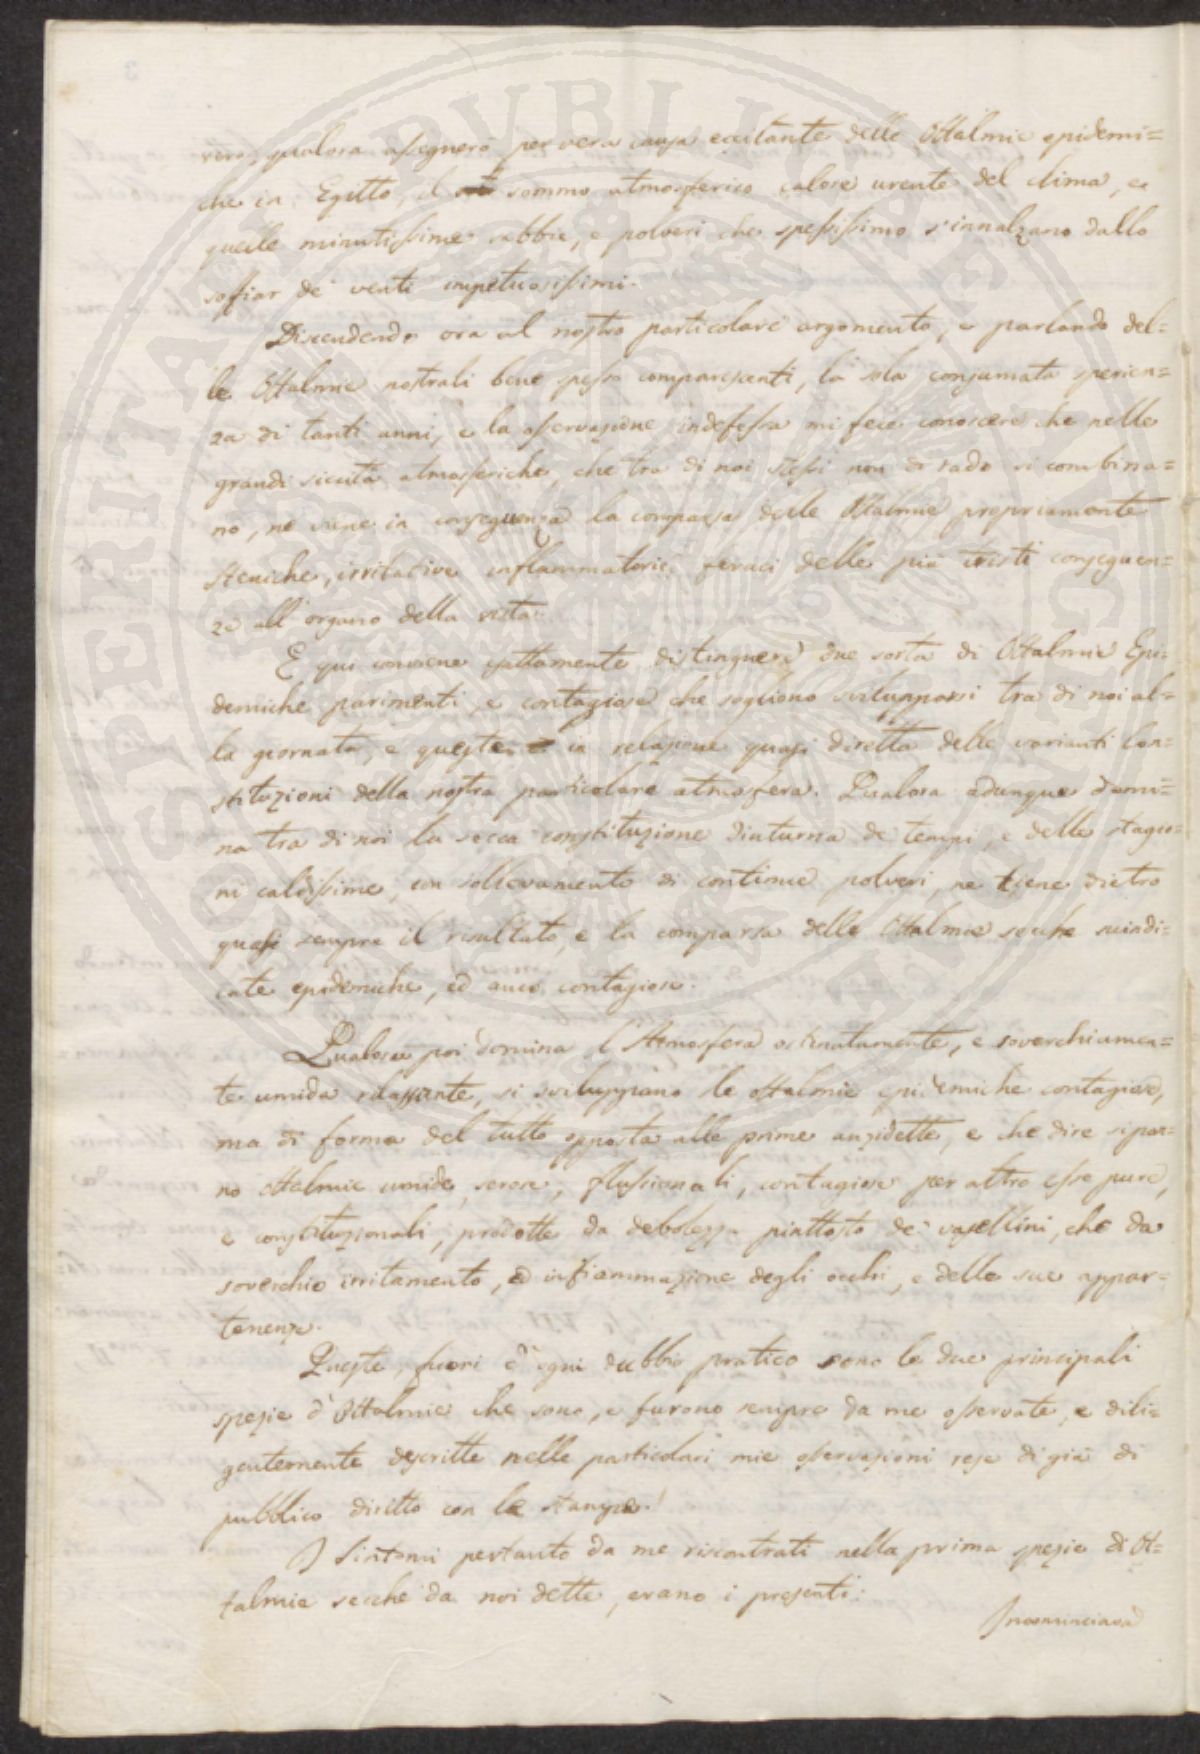 vero, qualora assegnerò per vera causa eccitante delle Ottalmie epidemi=
che in Egitto, il sommo atmosferico calore urente del clima, e
quelle minutissime sabbie, e polveri che spessissimo s'innalzano dallo
soffiar de' venti impetuosissimi.
Discendendo ora al nostro particolare argomento, e parlando del=
le Ottalmie nostrali bene spesso comparescenti, la sola consumata sperien=
za di tanti anni, e la osservazione indefessa mi fece conoscere che nelle
grandi siccità atmosferiche, che tra di noi stessi non di rado si combina=
no, ne viene in conseguenza la comparsa delle Ottalmie propriamente
steniche, irritative inflammatorie, feraci delle più tristi conseguen=
ze all'organo della vista.
E qui conviene esattamente distinguere due sorta di Ottalmie Epi=
demiche parimenti, e contagiose che sogliono svilupparsi tra di noi al=
la giornata, e queste in relazione quasi diretta delle varianti Con=
stituzioni della nostra particolare atmosfera. Qualora adunque domi=
na tra di noi la secca constituzione diuturna de' tempi, e delle stagio=
ni caldissime, con sollevamento di continue polveri, ne tiene dietro
quasi sempre il risultato, e la comparsa delle Ottalmie secche suindi=
cate epidemiche, ed anco contagiose.
Qualora poi domina l'Atmosfera ostinatamente, e soverchiamen=
te umida rilassante, si sviluppano le ottalmie epidemiche contagiose,
ma di forma del tutto opposta alle prime anzidette, e che dire si pon=
no ottalmie umide, serose, flussionali, contagiose per altro esse pure,
e constituzionali, prodotte da debolezza piuttosto de' vasellini, che da
soverchio irritamento, ed infiammazione degli occhi, e delle sue appar=
tenenze.
Queste, fuori d'ogni dubbio pratico sono le due principali
spezie d'Ottalmie che sono, e furono sempre da me osservate, e dili=
gentemente descritte nelle particolari mie osservazioni rese di già di
pubblico diritto con le stampe.
I Sintomi pertanto da me riscontrati nella prima spezie di Ot=
talmie secche da noi dette, erano i presenti.
Incominciava